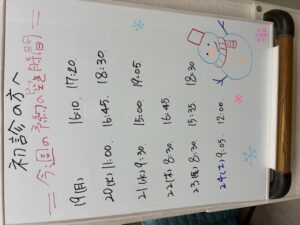 初診の方へ
＝今週の予約の空き時間＝
19(月) 16:10. 17:20.
20(火) 11:00. 15:45. 18:30.
21(水) 9:30. 15:00 19:05.
22(木) 8:30 16:45.
23(金) 8:30 15:35. 18:30
24(土) 9:05 12:00